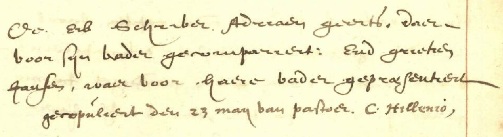 De Erb Schriver Adriaen geerts, daer
voor sijn vader gecompareert: End grieten
hansen, waer voor haere vader gepræsenteert
gecopuliert den 23 may van pastoer. C. Hillenio,